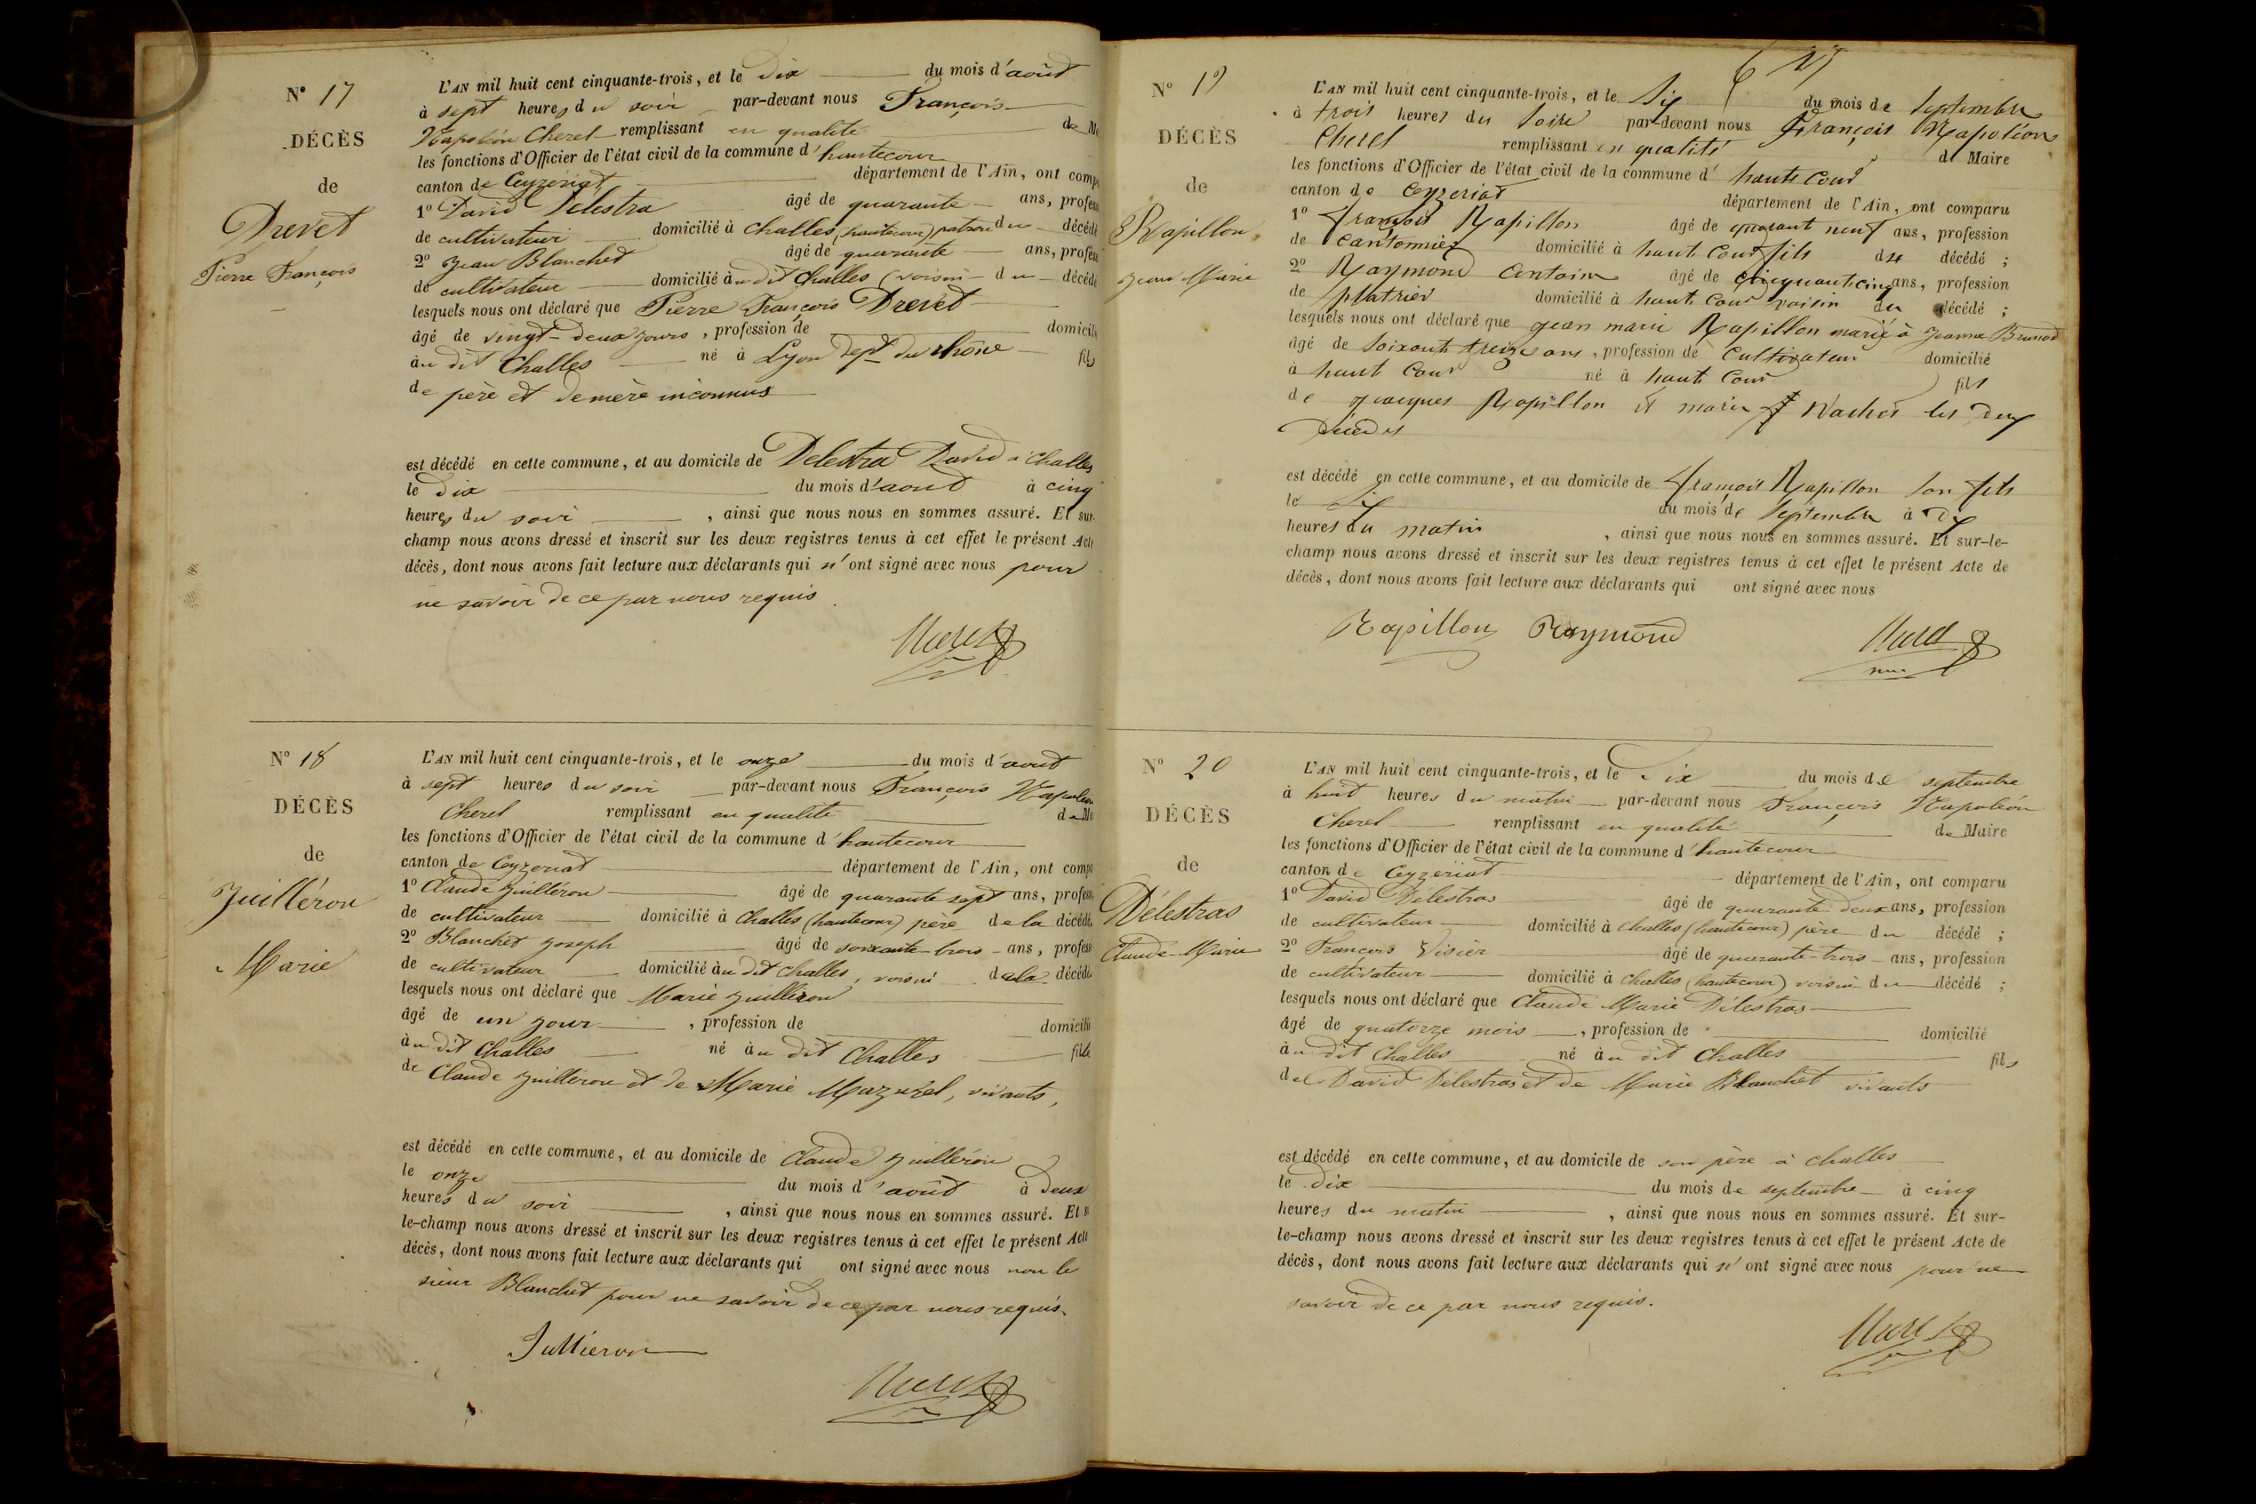 N° 17
DÉCÈS
de
Drevet
Pierre François
L'AN mil huit cent cinquante-trois, et le Dix du mois d'août
à sept heures du soir par-devant nous François
Napoléon Cherel remplissant en qualité de M
les fonctions d'Officier de l'état civil de la commune d'hautecour
canton de Ceyzeriat département de l'Ain, ont comp
1° David Delestra âgé de quarante ans, profess
de cultivateur domicilié à Challes (hautecour) patron du décédé
2° Jean Blanchet âgé de quarante ans, profess
de cultivateur domicilié àu dit Challes (voisin du décédé
lesquels nous ont déclaré que Pierre François Drevet
âgé de vingt-deux jours, profession de domicili
àu dit Challes né à Lyon dept du rhône fils
de père et de mère inconnus
est décédé en cette commune, et au domicile de Delestra David à Challes
le Dix du mois d'aout à cinq
heures du soir, ainsi que nous nous en sommes assuré. Et sur-
champ nous avons dressé et inscrit sur les deux registres tenus à cet effet le présent Acte
décès, dont nous avons fait lecture aux déclarants qui n'ont signé avec nous pour
ne savoir de ce par nous requis
N° 18
DÉCÈS
de
Juilléron
Marie
L'AN mil huit cent cinquante-trois, et le onze du mois d'aout
à sept heures du soir par-devant nous François Napoléon
Cherel remplissant en qualité de M
les fonctions d'Officier de l'état civil de la commune d'hautecour
canton de Ceyzeriat département de l'Ain, ont comp
1° Claude Juilléron âgé de quarante sept ans, profess
de cultivateur domicilié à Challes (hautecour) père de la décédé
2° Blanchet Joseph âgé de soixante-trois ans, profess
de cultivateur domicilié àu dit Challes, voisin de la décédé
lesquels nous ont déclaré que Marie Juilléron
âgé de un jour, profession de domicilié
àu dit Challes né àu dit Challes fille
de Claude Juilléron et de Marie Mazurel, vivants,
est décédé en cette commune, et au domicile de Claude Juilléron
le onze du mois d'août à deux
heures du soir, ainsi que nous nous en sommes assuré. Et s
le-champ nous avons dressé et inscrit sur les deux registres tenus à cet effet le présent Acte
décès, dont nous avons fait lecture aux déclarants qui ont signé avec nous non le
sieur Blanchet pour ne savoir de ce par nous requis.
Jullieron
N° 19
DÉCÈS
de
Rapillon
Jean Marie
L'AN mil huit cent cinquante-trois, et le Six du mois de Septembre
à trois heures du Soire par-devant nous François Napoléon
Cherel remplissant en qualité de Maire
les fonctions d'Officier de l'état civil de la commune d'haute Cour
canton de Ceyzeriat département de l'Ain, ont comparu
1° François Rapillon âgé de quarant neuf ans, profession
de Cantonnier domicilié à haut Cour fils du décédé ;
2° Raymond Antoine âgé de cinquant cinq ans, profession
de platrier domicilié à haut Cour voisin du décédé ;
lesquels nous ont déclaré que Jean marie Rapillon marié à Jeanne Brunod
âgé de Soixante treize ans, profession de Cultivateur domicilié
à haut Cour né à haut Cour fils
de Jacques Rapillon et marie Vachet les deux
décédés
est décédé en cette commune, et au domicile de François Rapillon Son fils
le Six du mois de Septembre à dix
heures du matin, ainsi que nous nous en sommes assuré. Et sur-le-
champ nous avons dressé et inscrit sur les deux registres tenus à cet effet le présent Acte de
décès, dont nous avons fait lecture aux déclarants qui ont signé avec nous
Rapillon Raymond
N° 20
DÉCÈS
de
Délestras
Claude-Marie
L'AN mil huit cent cinquante-trois, et le Dix du mois de septembre
à huit heures du matin par-devant nous François Napoléon
Cherel remplissant en qualité de Maire
les fonctions d'Officier de l'état civil de la commune d'hautecour
canton de Ceyzeriat département de l'Ain, ont comparu
1° David Délestras âgé de quarante deux ans, profession
de cultivateur domicilié à Challes (hautecour) père du décédé ;
2° François Visier âgé de quarante-trois ans, profession
de cultivateur domicilié à Challes (hautecour) voisin du décédé ;
lesquels nous ont déclaré que Claude Marie Délestras
âgé de quatorze mois, profession de domicilié
àu dit Challes né àu dit Challes fils
de David Délestras et de Marie Blanchet vivants
est décédé en cette commune, et au domicile de son père à Challes
le Dix du mois de septembre à cinq
heures du matin, ainsi que nous nous en sommes assuré. Et sur-
le-champ nous avons dressé et inscrit sur les deux registres tenus à cet effet le présent Acte de
décès, dont nous avons fait lecture aux déclarants qui n'ont signé avec nous pour ne
savoir de ce par nous requis.